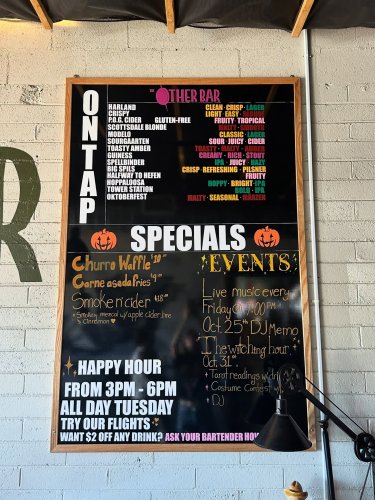 THE OTHER BAR
ON TAP
HARLAND CLEAN · CRISP · LAGER
CRISPY LIGHT · EASY ·
P.O.G. CIDER GLUTEN-FREE FRUITY · TROPICAL
SCOTTSDALE BLONDE MALTY ·
MODELO CLASSIC · LAGER
SOURGARTEN SOUR · JUICY · CIDER
TOASTY AMBER TOASTY · MALTY · AMBER
GUINESS CREAMY · RICH · STOUT
SPELLBINDER IPA · JUICY · HAZY
BIG SPILS CRISP · REFRESHING · PILSNER
HALFWAY TO HEFEN FRUITY
HOPPALOOSA HOPPY · BRIGHT · IPA
TOWER STATION BOLD · IPA
OKTOBERFEST MALTY · SEASONAL · MARZEN
SPECIALS
Churro Waffle $10
Carne asada fries $9
Smoke n' cider $18
* Smokey mezcal w/ apple cider, lime
& cinnamon ♥
EVENTS
Live music every
Friday @ 7:00 PM
Oct. 25th DJ Memo
The witching hour,
Oct. 31st.
* Tarot readings
Costume Contest
DJ
HAPPY HOUR
FROM 3PM - 6PM
ALL DAY TUESDAY
TRY OUR FLIGHTS
WANT $2 OFF ANY DRINK? ASK YOUR BARTENDER
R